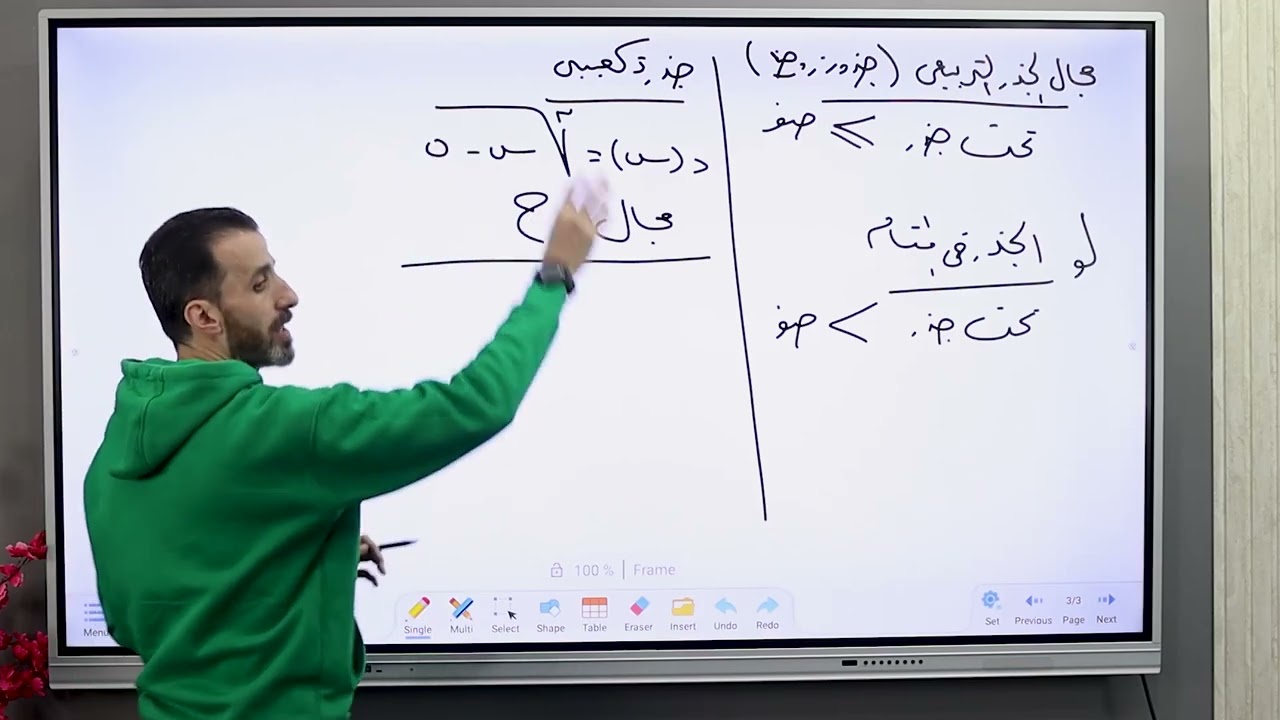 مجال الجذر التربيعى (جذور زوجية)
تحت جذر ≥ صفر
لو الجذر فى مقام
تحت جذر > صفر
جذر تكعيبى
د(س) = ∛س - ٥
مجال ح
100 % | Frame
Menu
Single
Multi
Select
Shape
Table
Eraser
Insert
Undo
Redo
Set
Previous
3/3
Page
Next